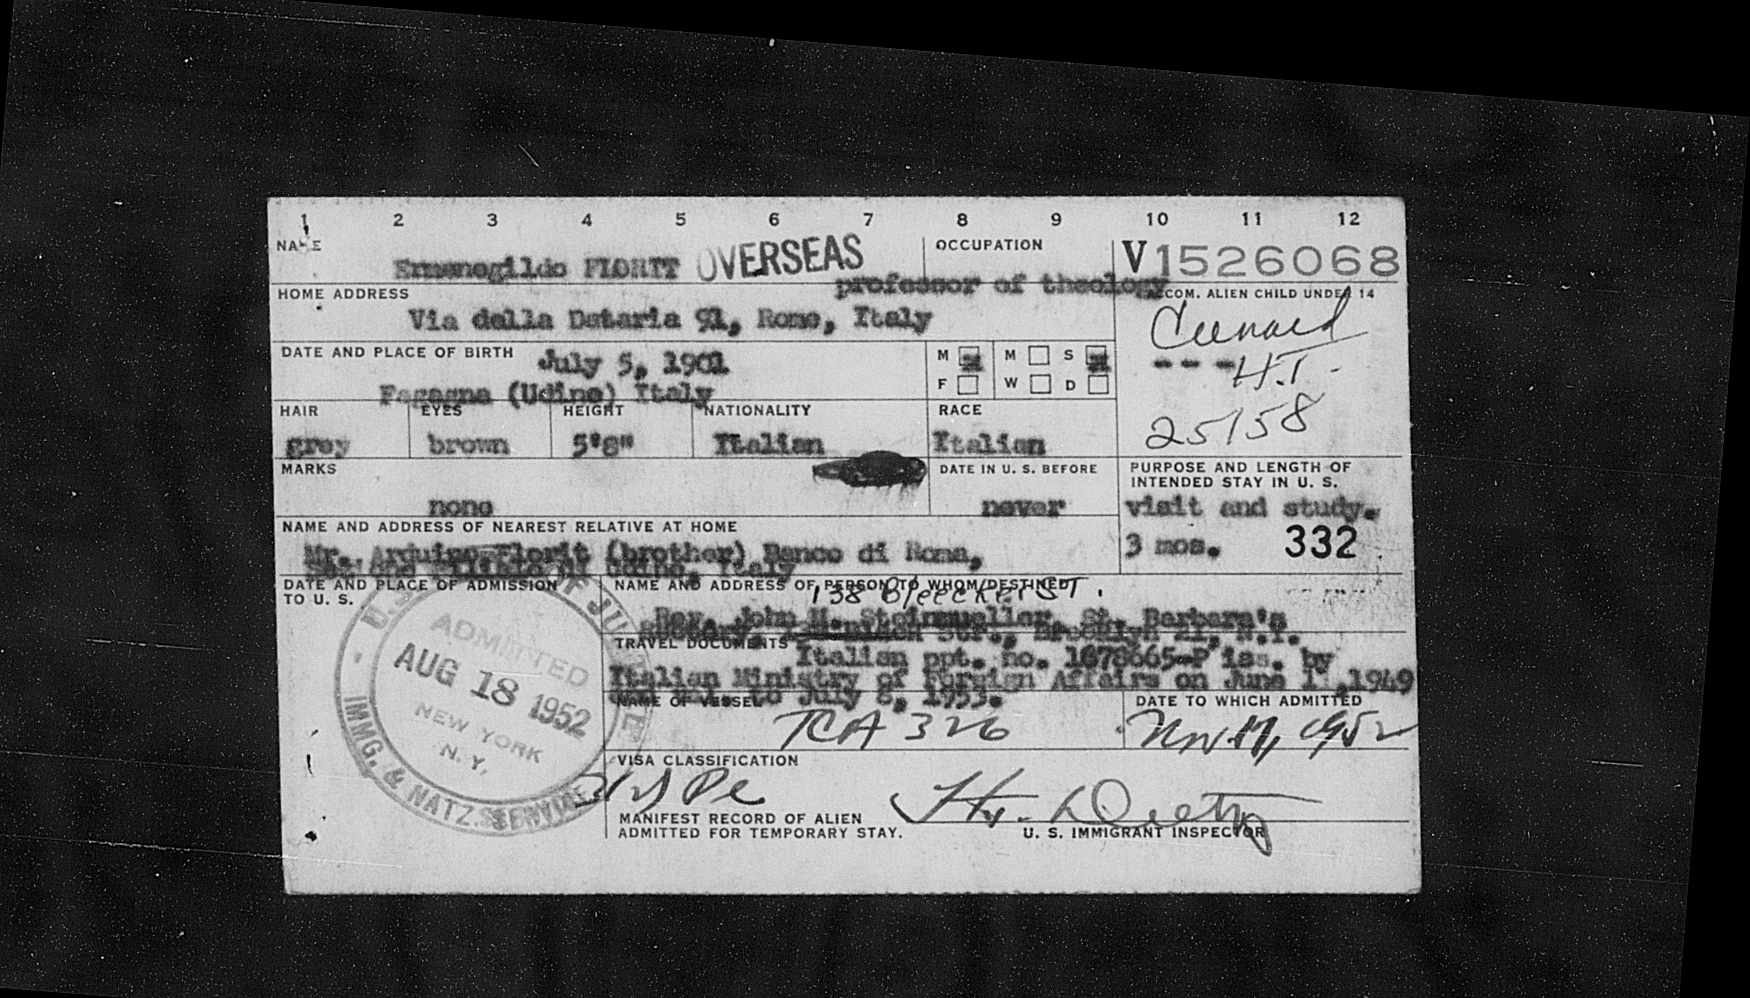 1 2 3 4 5 6 7 8 9 10 11 12
NAME
Ermenegildo FLORIT OVERSEAS
OCCUPATION
professor of theology
V1526068
HOME ADDRESS
Via della Dataria 91, Rome, Italy
ACCOM. ALIEN CHILD UNDER 14
Cunard
---
H.I.
25158
DATE AND PLACE OF BIRTH
July 5, 1901
Fagagna (Udine) Italy
M M S
F W D
HAIR EYES HEIGHT NATIONALITY RACE
grey brown 5'8" Italian Italian
MARKS
none
DATE IN U. S. BEFORE
never
PURPOSE AND LENGTH OF
INTENDED STAY IN U. S.
visit and study.
3 mos. 332
NAME AND ADDRESS OF NEAREST RELATIVE AT HOME
Mr. Arduino Florit (brother) Banco di Roma,
Udine, Italy
DATE AND PLACE OF ADMISSION
TO U. S.
ADMITTED
AUG 18 1952
NEW YORK
N. Y.
IMMG. & NATZ. SERVICE
NAME AND ADDRESS OF PERSON TO WHOM DESTINED
138 Bleecker ST.
Rev. John H. Steinmueller, St. Barbara's
Str., Brooklyn 21, N.Y.
TRAVEL DOCUMENTS
Italian ppt. no. 1078665-P iss. by
Italian Ministry of Foreign Affairs on June 1,1949
and val. to July 8, 1953.
NAME OF VESSEL
TCA 326
DATE TO WHICH ADMITTED
Nov. 17, 1952
VISA CLASSIFICATION
MANIFEST RECORD OF ALIEN
ADMITTED FOR TEMPORARY STAY.
U. S. IMMIGRANT INSPECTOR